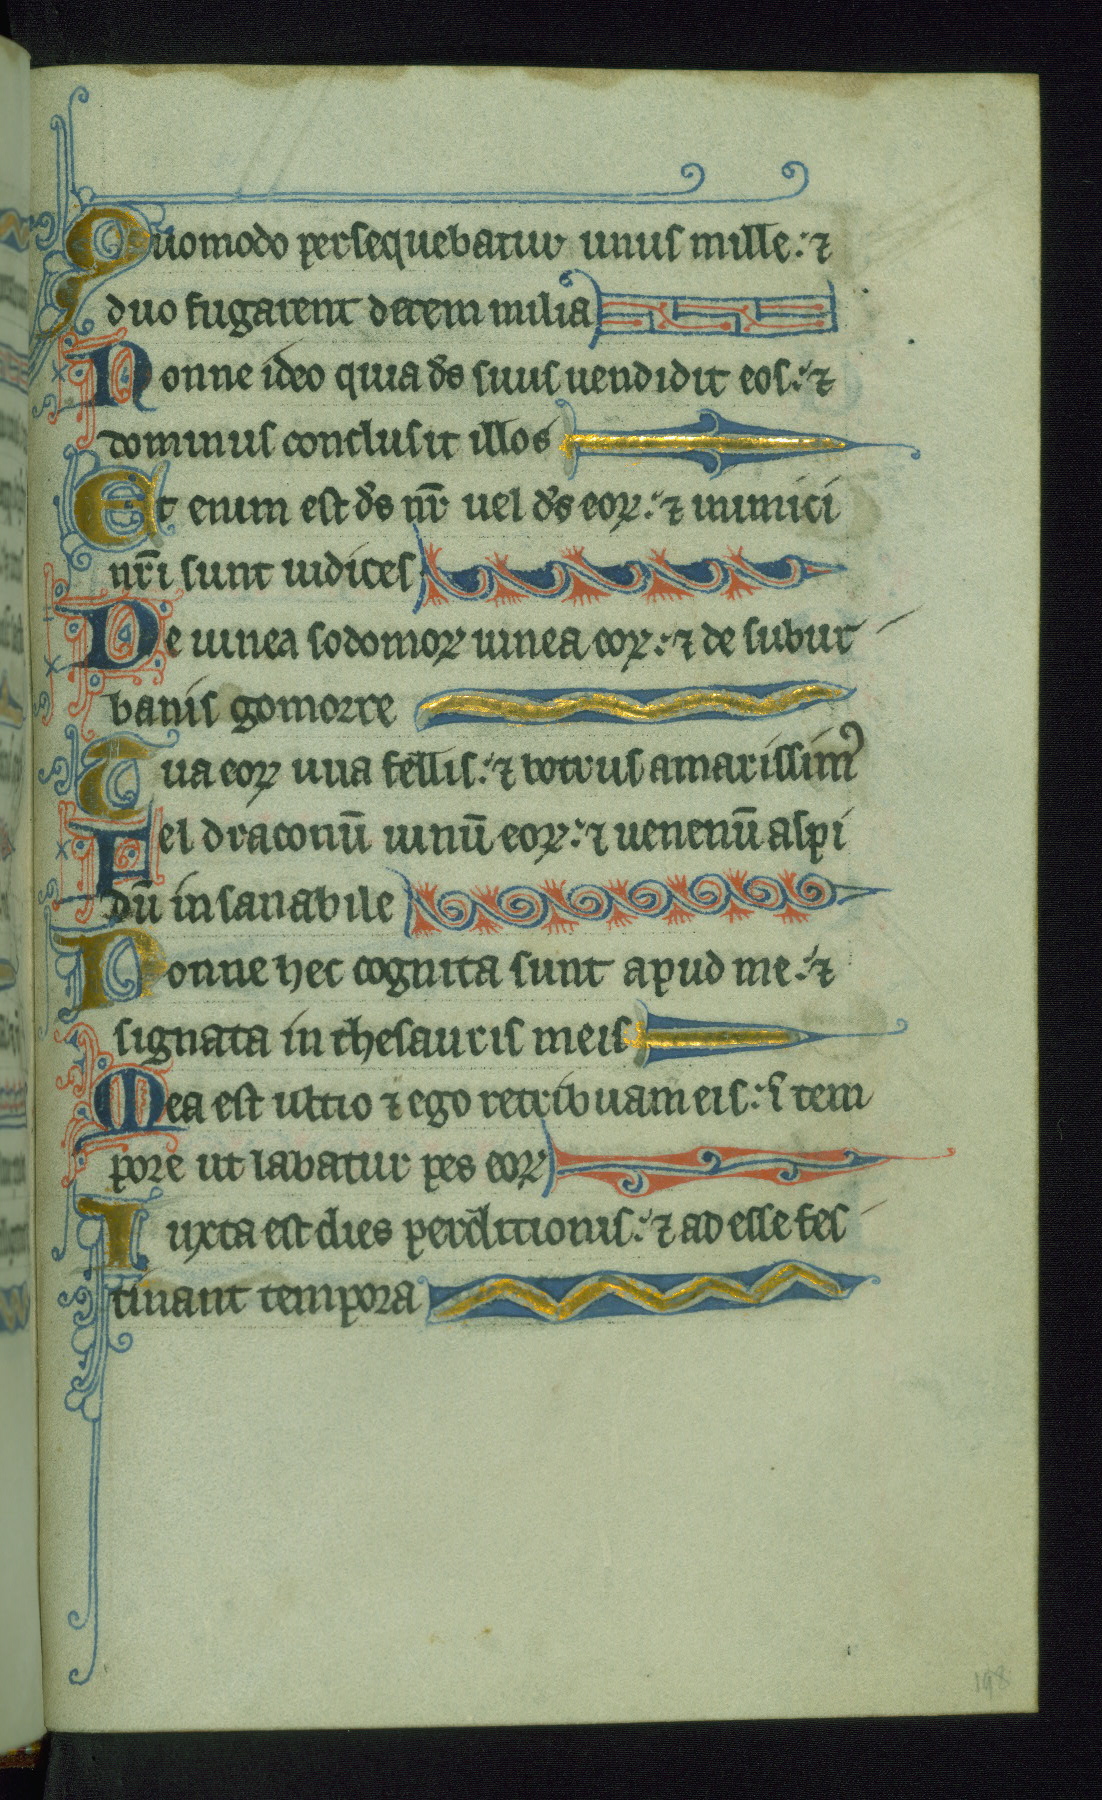 Quomodo persequebatur unus mille: ⁊
duo fugarent decem milia
Nonne ideo quia d̄s suus uendidit eos: ⁊
dominus conclusit illos
Et enim est d̄s nr̄ uel d̄s eoꝝ: ⁊ inimici
nr̄i sunt iudices
De uinea sodomoꝝ uinea eoꝝ: ⁊ de subur
banis gomorre
Uua eoꝝ uua fellis: ⁊ botrus amarissimꝰ
Fel draconū uinū eoꝝ: ⁊ uenenū aspi
dū insanabile
Nonne hec cognita sunt apud me: ⁊
signata in thesauris meis
Mea est ultio ⁊ ego retribuam eis: ī tem
pore ut labatur pes eoꝝ
Iuxta est dies perditionis: ⁊ adesse fes
tinant tempora
198